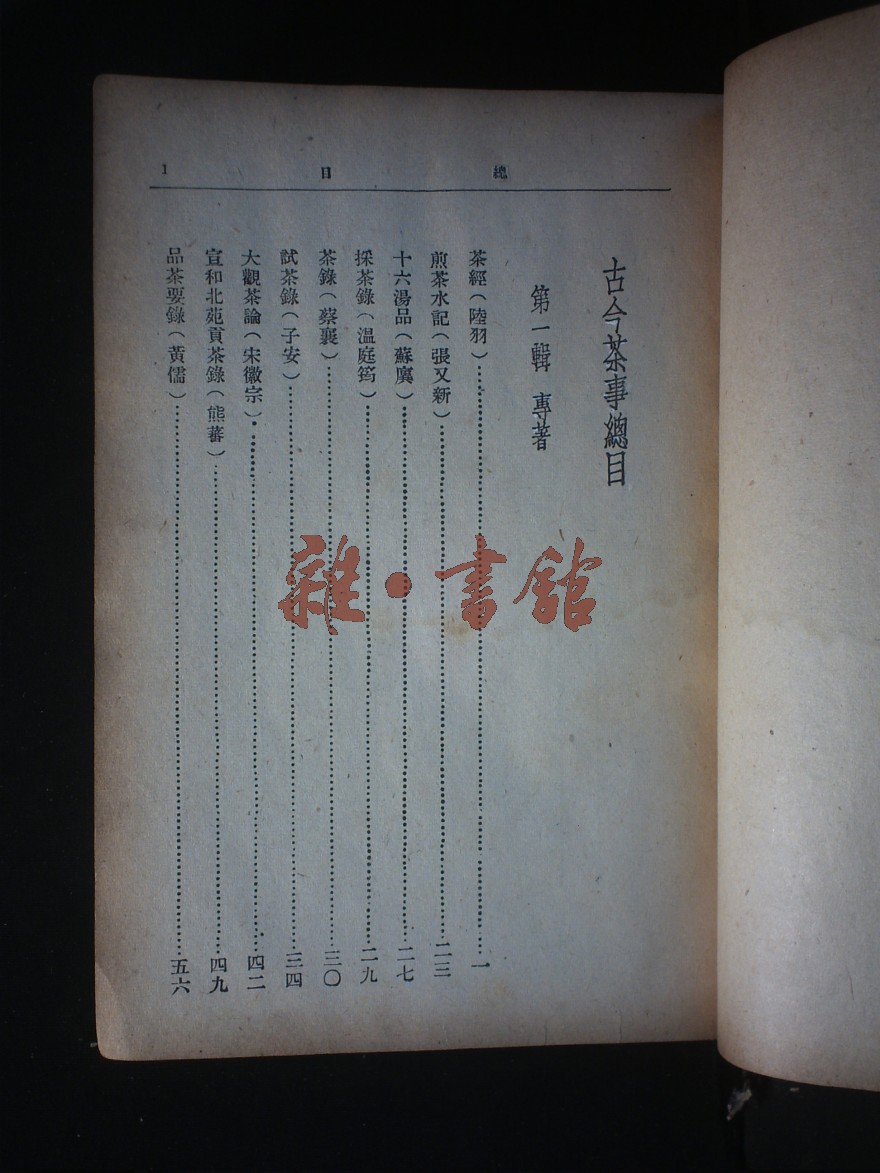 總目 1
古今茶事總目
第一輯 專著
茶經(陸羽)……一
煎茶水記(張又新)……二三
十六湯品(蘇廙)……二七
採茶錄(溫庭筠)……二九
茶錄(蔡襄)……三〇
試茶錄(子安)……三四
大觀茶論(宋徽宗)……四二
宣和北苑貢茶錄(熊蕃)……四九
品茶要錄(黃儒)……五六
雜·書館